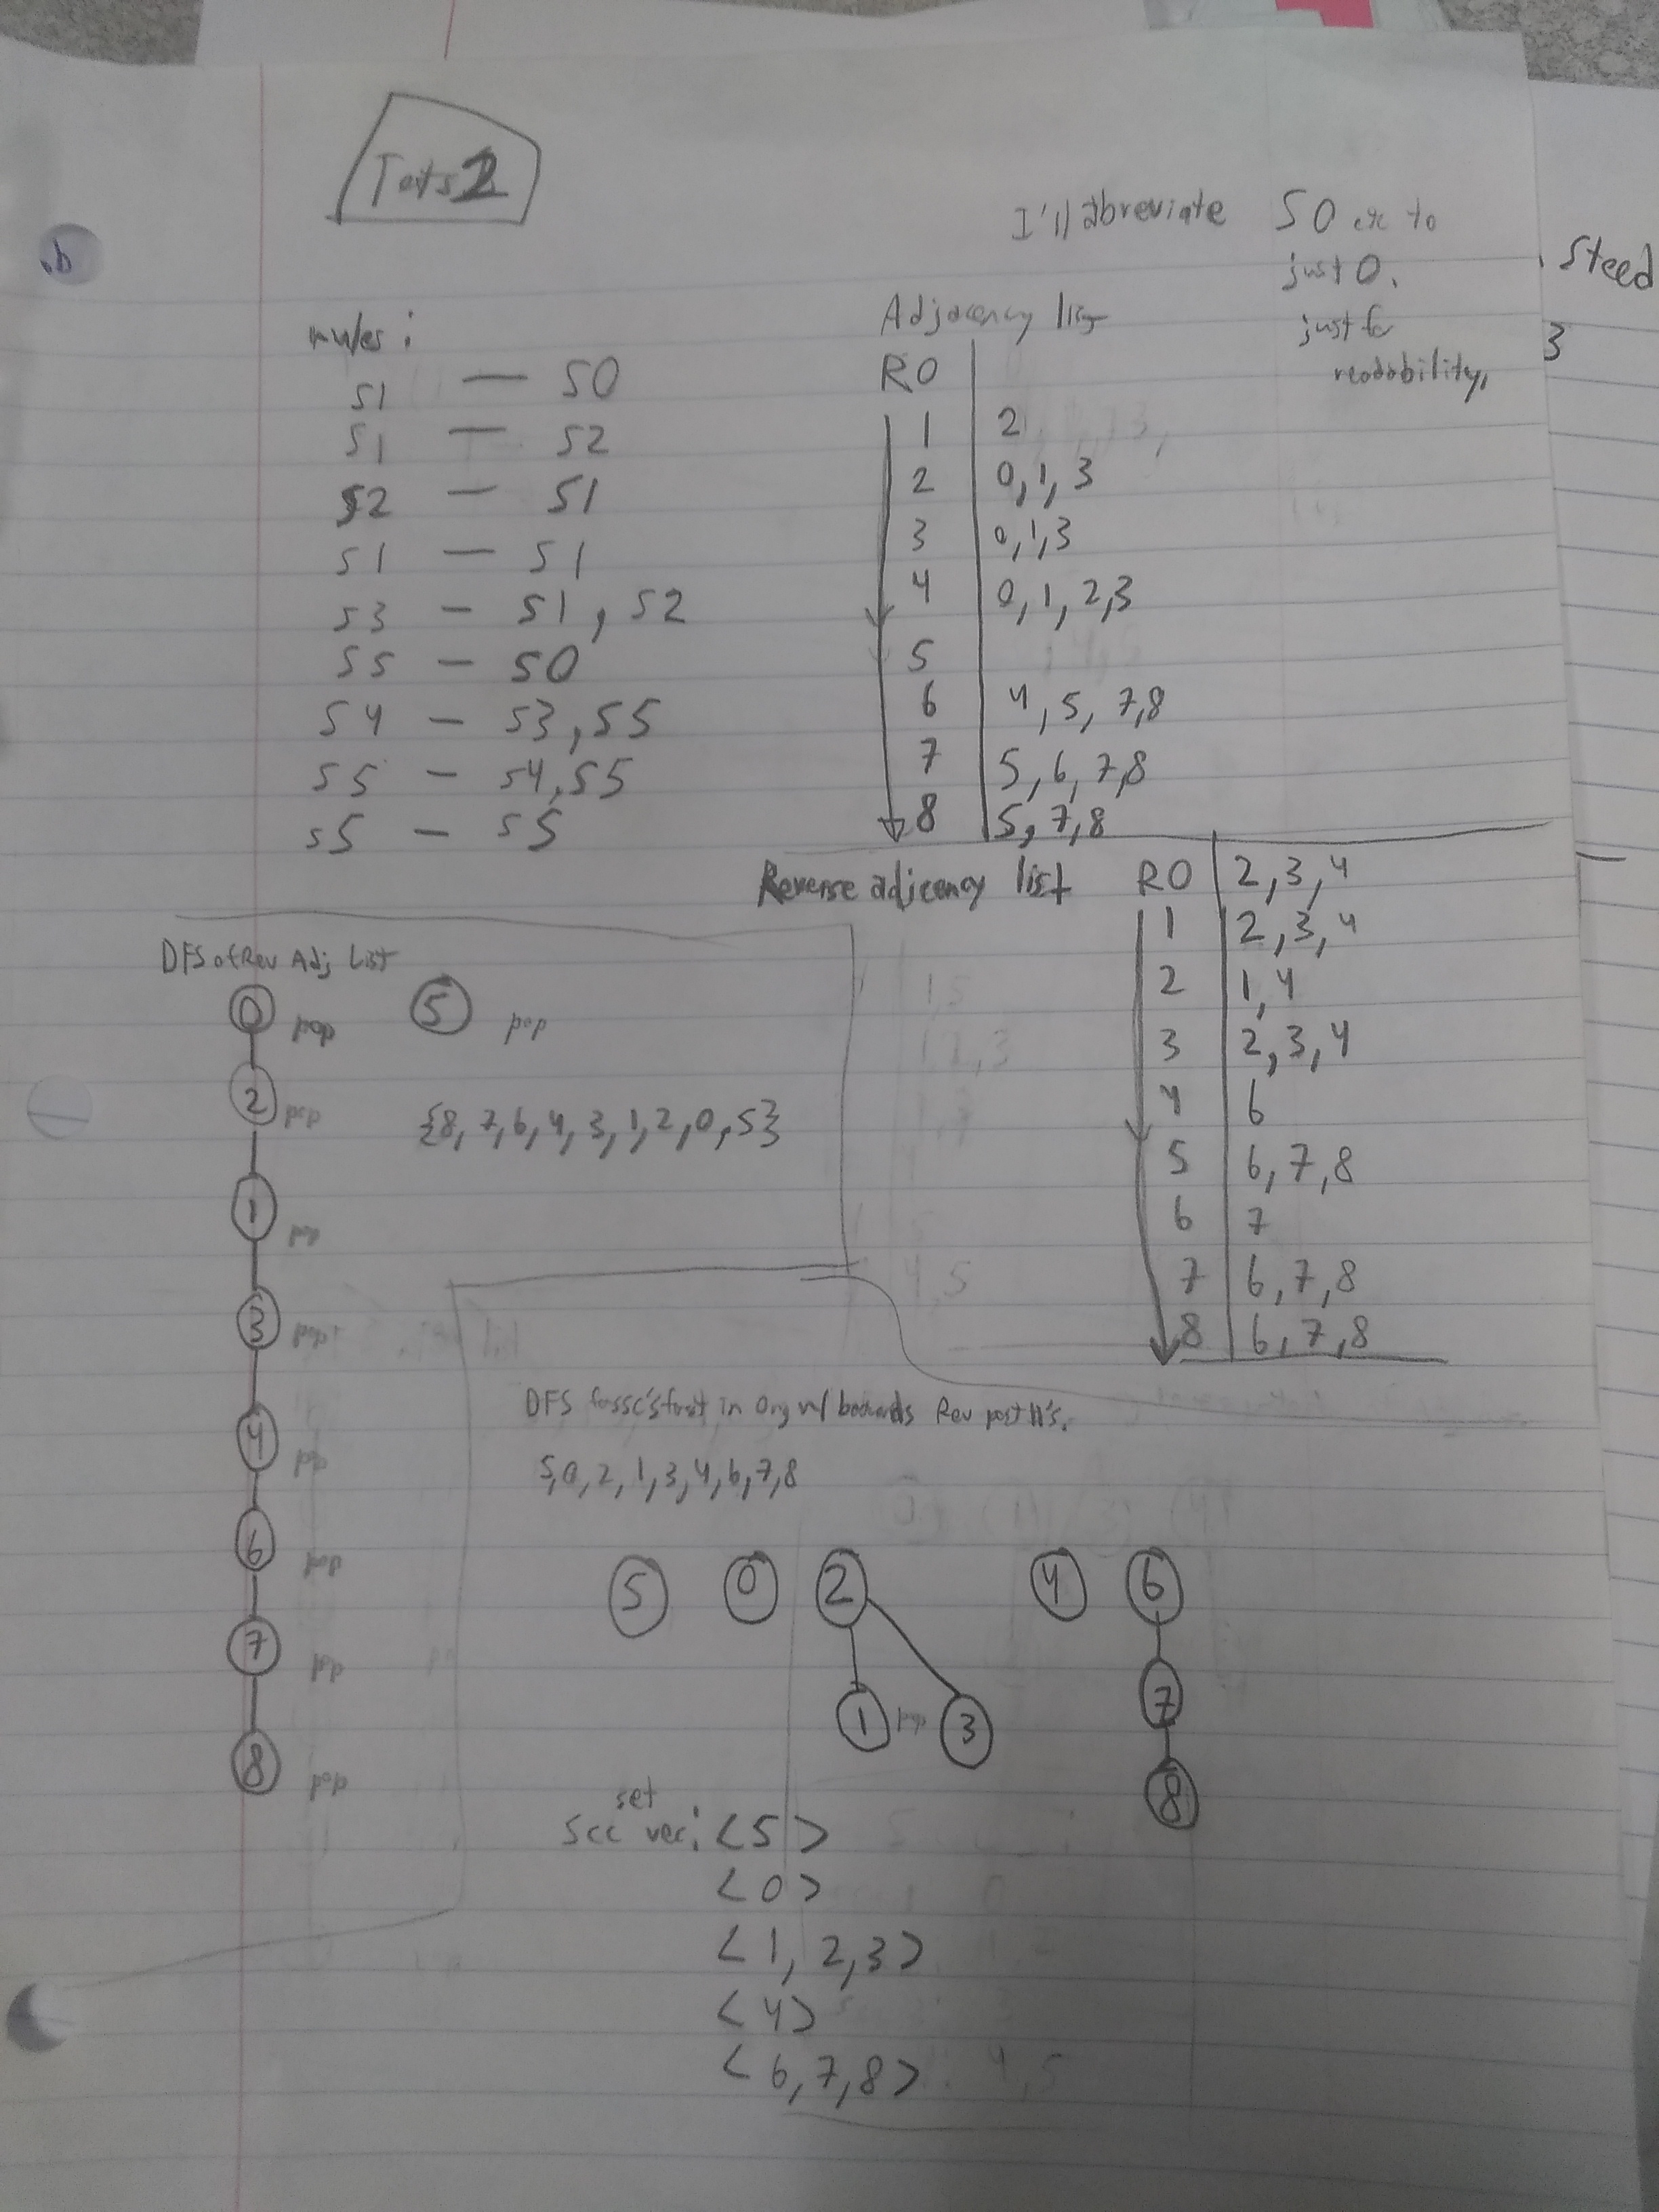 Tets 2
I'll abreviate SO etc to
just 0.
just for
readability,
.b
Steed
3
rules:
S1 — S0
S1 — S2
S2 — S1
S1 — S1
S3 — S1, S2
S5 — S0
S4 — S3, S5
S5 — S4, S5
S5 — S5
Adjacency list
R0
1 2
2 0,1,3
3 0,1,3
4 0,1,2,3
5
6 4,5,7,8
7 5,6,7,8
8 5,7,8
Reverse adjcency list
R0 2,3,4
1 2,3,4
2 1,4
3 2,3,4
4 6
5 6,7,8
6 7
7 6,7,8
8 6,7,8
DFS of Rev Adj List
0 pop 5 pop
2 pop {8,7,6,4,3,1,2,0,5}
1 pop
3 pop
4 pop
6 pop
7 pop
8 pop
DFS for in Org w/ Rev post #'s.
5,0,2,1,3,4,6,7,8
5 0 2 4 6
1 pop 3 7
8
set
Scc vec: <5>
<0>
<1, 2,3>
<4>
<6,7,8>